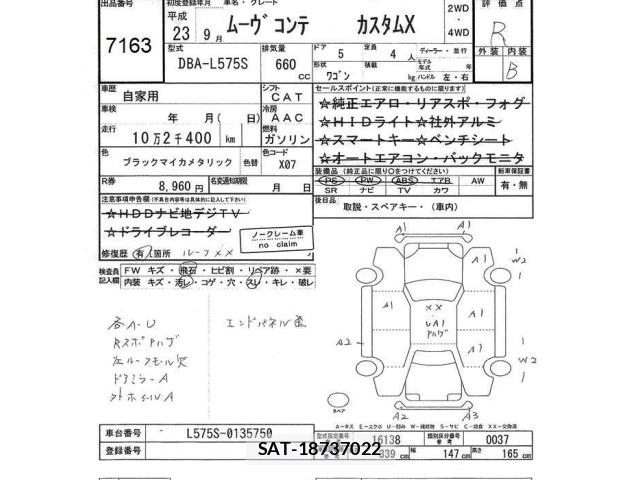 出品番号 初度登録年月 車名・グレード 評価点
7163
平成 23 9月 ムーヴコンテ カスタムX 2WD・4WD R
型式 排気量 ドア 5 定員 4人 ディーラー・並行 外装 内装
DBA-L575S 660 cc 形状 ワゴン 積載 kg モデル年式 年 ハンドル 左・右 B
車歴 自家用 シフト CAT セールスポイント(正常に機能するものに限ります)
車検 年 月( 日) 冷房 AAC ☆純正エアロ・リアスポ・フォグ
☆HIDライト☆社外アルミ
走行 10万2千400 km 燃料 ガソリン ☆スマートキー☆ベンチシート
☆オートエアコン・バックモニタ
色 ブラックマイカメタリック 色替 色コード X07
装備品(純正品に限り○をつけてください) 新車保証書
R券 8,960円 名変通知期限 月 日 PS PW ABS エアB AW 有・無
SR ナビ TV カワ
注意事項申告欄
☆HDDナビ地デジTV 後日品 取説・スペアキー・(車内)
☆ドライブレコーダー
ノークレーム車
no claim
修復歴 有 箇所 ルーフXX
検査員記入欄 FW キズ・飛石・ヒビ割・リペア跡・×要
内装 キズ・汚レ・コゲ・穴・スレ・キレ・破レ
各A-U エンドパネル歪
RスポPハゲ
左ルーフモール欠
ドアミラーA
アルトホイルA
A1 A1
W2
A1 A1
XX
UA1
Pハゲ
A2 A1
W2
スペア
A2 A3
A=キズ E=エクボ U=凹み W=補修跡 S=サビ C=腐食 X X=交換済
車台番号 L575S-0135750 型式指定番号 参考 16138 類別区分番号 参考 0037
登録番号 339 cm 幅 147 cm 高さ 165 cm
SAT-18737022